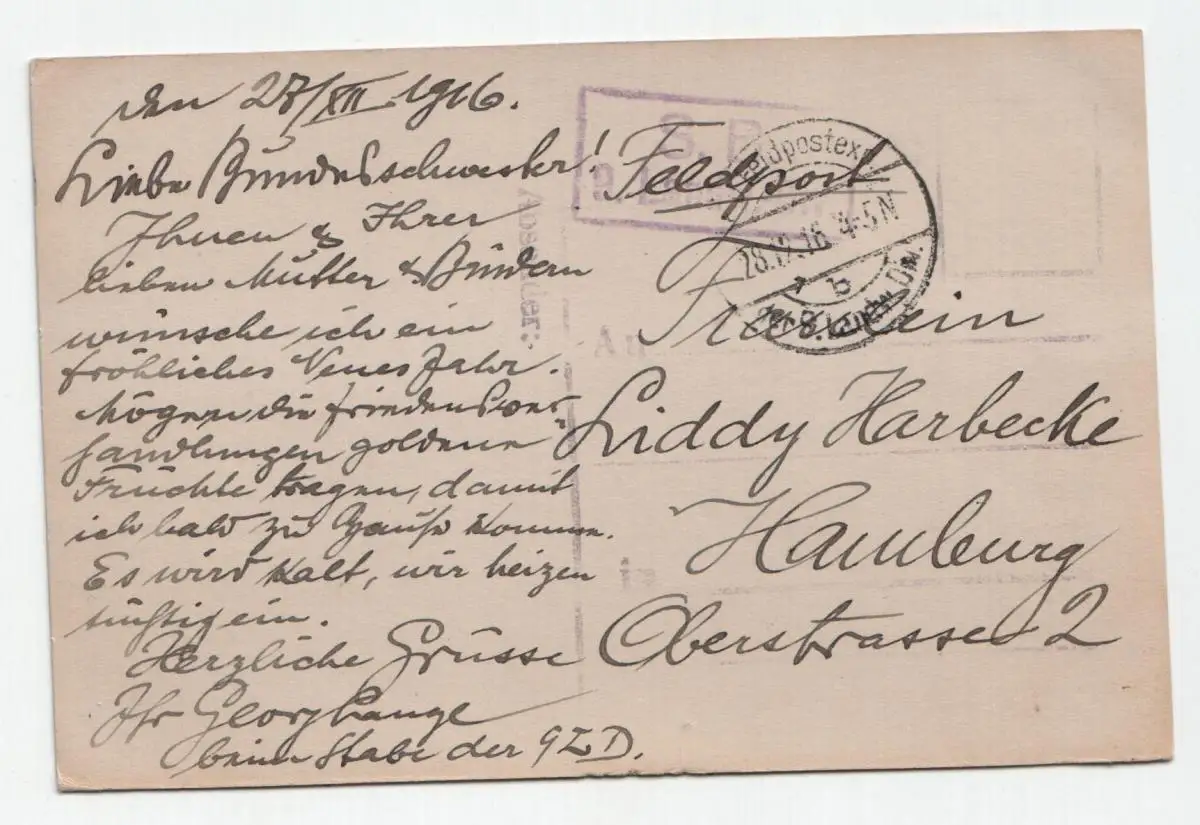 den 27/XII 1916.
Liebe Bundesschwester!
Ihnen & Ihrer
lieben Mutter & Brüdern
wünsche ich ein
fröhliches Neues Jahr.
Mögen die Friedensver-
handlungen goldene
Früchte tragen, damit
ich bald zu Hause komme.
Es wird kalt, wir heizen
tüchtig ein.
Herzliche Grüsse
Ihr Georg Lange
beim Stabe der 9 L D.
Absender:
S. B.
Feldpost
Feldpostexp.
28.12.16. 4-5N
b
Landw. Div.
An
Fräulein
Liddy Harbecke
in
Hamburg
Oberstrasse 2